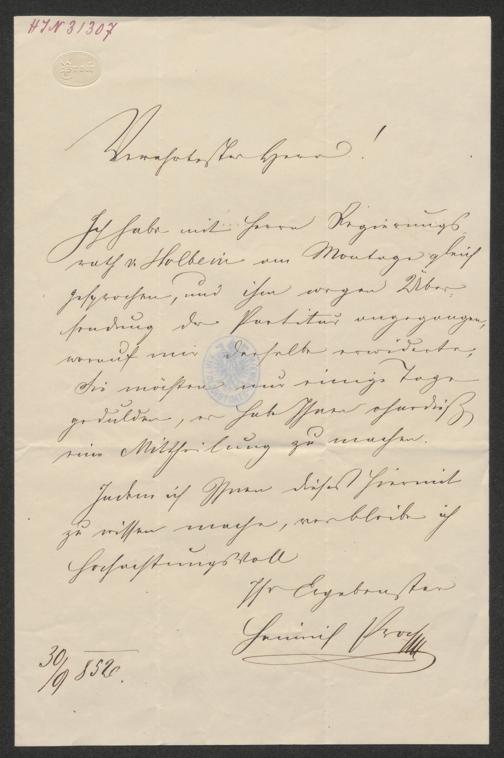 HIN 31307
Verehrtester Herr!
Ich habe mit Herrn Regierungs
rath v. Holbein am Montage gleich
gesprochen, und ihn wegen Über-
sendung der Partitur angegangen,
worauf mir derselbe erwiederte,
Sie möchten nur einige Tage
gedulden, er hab Ihnen ohnedieß
eine Mittheilung zu machen.
Indem ich Ihnen dieses hiermit
zu wissen mache, verbleibe ich
hochachtungsvoll
Ihr Ergebenster
Heinrich Proch
30/9 852.